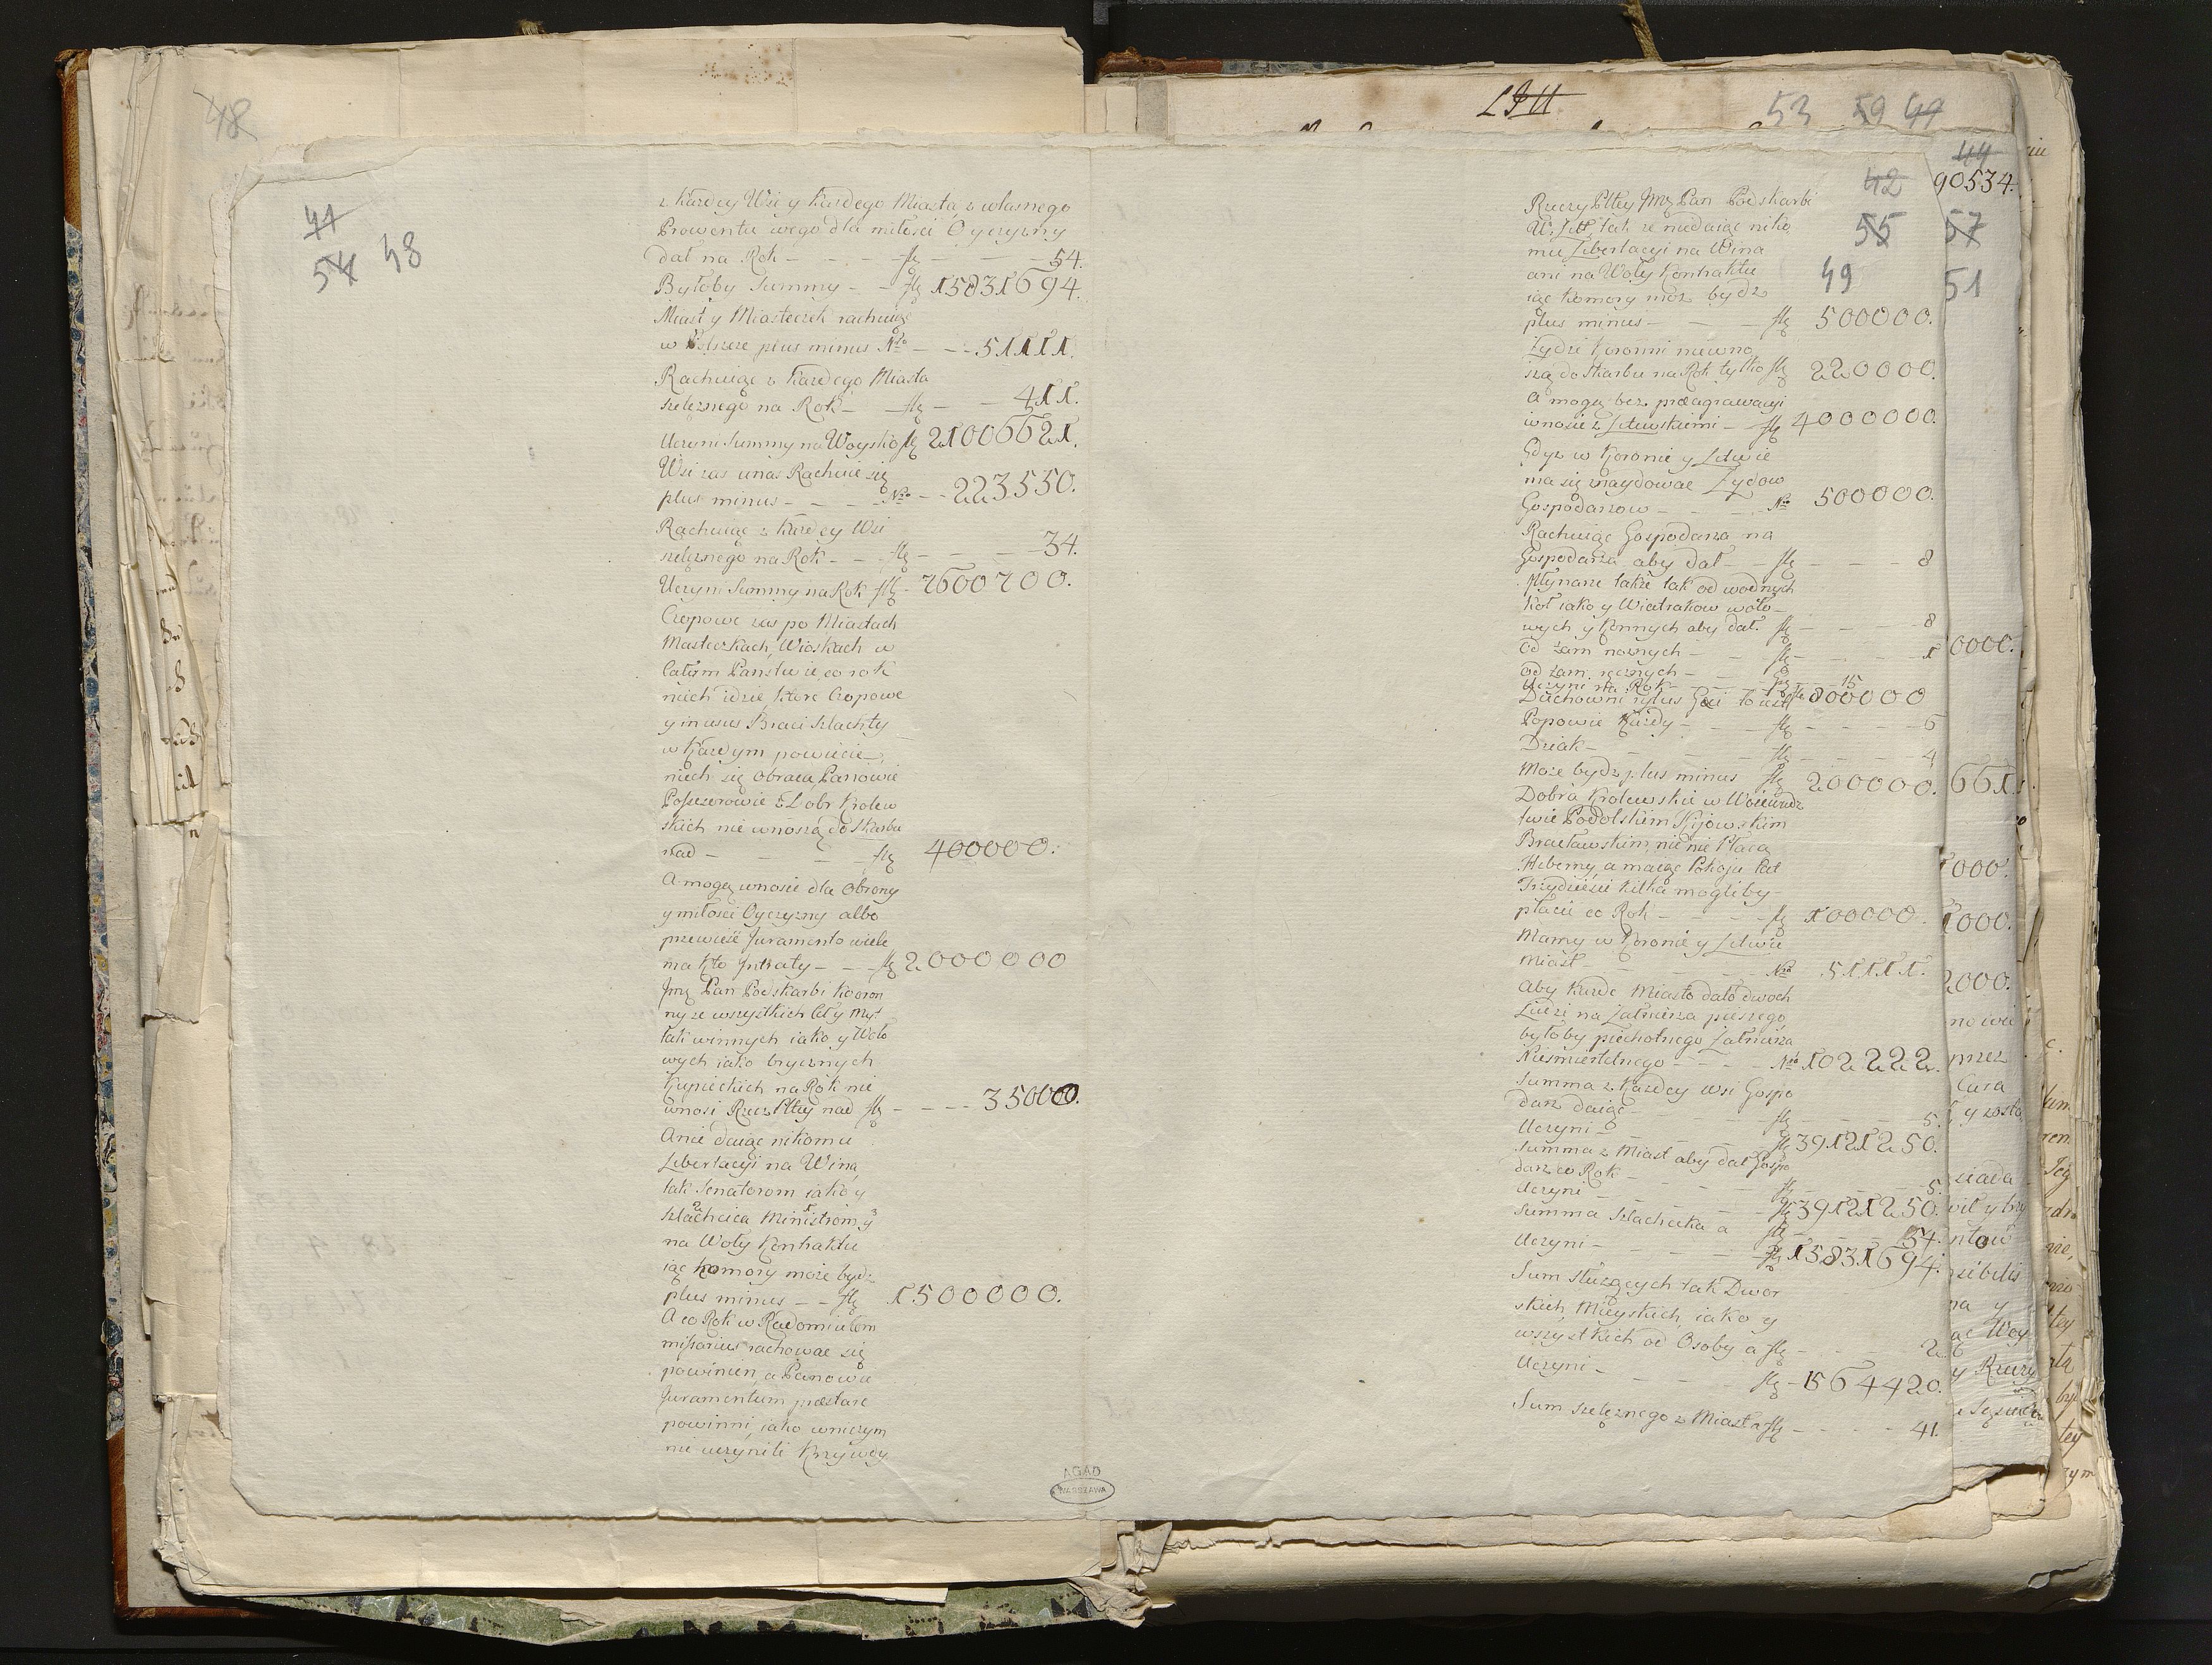 48
41
54 48
z każdey Wsi y każdego Miasta z własnego
Prowentu swego dla miłości Oyczyzny
dał na Rok - - - - fl: - - - 54.
Byłoby Summy - - fl: 15831694.
Miast y Miasteczek rachuiąc
w Polszcze plus minus Nro - - - 51111.
Rachuiąc z każdego Miasta
szelężnego na Rok - - fl: - - 411.
Uczyni Summy na Woysko fl: 21006621.
Wsi zas unas Rachuie się
plus minus - - - - Nro - - 223550.
Rachuiąc z każdey Wsi
szelężnego na Rok - - - fl: - - - 34.
Uczyni Summy na Rok fl: - 7600700.
Czopowe zas po Miastach
Miasteczkach, Wioskach w
całym Panstwie, co rok
niech idzie, które Czopowe
y in usus Braci Szlachty
w każdym powiecie,
niech się obraca, Panowie
Possessorowie z Dobr Krolew
skich nie wnoszą do skarbu
nad - - - - - fl: 400000.
A mogą wnosic dla Obrony
y miłości Oyczyzny albo
przewieść Juramento wiele
ma kto intraty - - - fl: 2000000
Jmc Pan Podskarbi Kooron
ny ze wszystkich Ceł y Myt
tak winnych iako y Woło
wych iako brycznych
Kupieckich na Rok nie
wnosi Rzeczy Pltey nad fl: - - - - 350000.
A nie daiąc nikomu
Libertacyi na Wina,
tak Senatorom iako y
Szlachcica Ministrom, y
na Woły Kontraktu
iąc Komory może bydz
plus minus - - fl: 1500000.
A co Rok w Radomiu Com
missarius rachowac się
powinien, a Panowie
Juramentum præstare
powinni, iako w niczym
nie uczynili Krzywdy
AGAD
WARSZAWA
53 59 49
44
42 90534.
Rzeczy Pltey Jmc Pan Podskarbi
W: Litt: tak ze niedaiąc niko 55 57
mu Libertacyi na Wina
ani na Woły Kontraktu 49 51
iąc Komory moz bydz
plus minus - - - fl: 500000.
Żydzi Koronni niewno
szą do Skarbu na Rok tylko fl: 220000.
A mogą bez præagrawacyi
wnosic z Litewskiemi - fl: 4000000.
Gdyz w Koronie y Litwie
ma się znaydowac Żydow
Gospodarzow - - - - Nro 500000.
Rachuiąc Gospodarza na
Gospodarza aby dał - - fl: - - - 8
Młynarze takze tak od wodnych
Koł iako y Wiatrakow woło-
wych y Konnych aby dał. fl: - - - 8
od żarn nożnych - - fl: - - - 1 0000.
od żarn ręcznych - - - - 15
Uczyni na Rok - - - fl: 800000
Duchowni rytus Græci to iest
Popowie każdy - - - fl: - - - 6
Dziak - - - - fl: - - - 4
Może bydz plus minus fl: 200000. 661.
Dobra Krolewskie w Woiewodz
twie Podolskim Kijowskim
Bracławskim, nic nie Płacą
Hiberny, a maiąc Pokoju Lat 000.
Trzydziesci kilka mogliby
płacić co Rok - - - - fl: 100000. 000.
Mamy w Koronie y Litwie
Miast - - - - Nro 51111.
Aby każde Miasto dało dwoch 2000.
Ludzi na Żałnierza pieszego
byłoby piechotnego Żałnierza
Niesmiertelnego - - - - Nro 102222. przez
Summa z każdey wsi Gospo
darz daiąc - - - - fl: - - - 5.
Uczyni - - - - fl: 39121250.
Summa z Miast aby dał Gospo
darz co Rok - - - - fl: - - - 5.
Uczyni - - - - fl: 39121250.
Summa Szlachecka a - fl: - - - 54.
Uczyni - - - - fl: 15831694.
Sum Służących tak Dwor
skich, Mieyskich, iako y
wszystkich od Osoby a fl: - - - 2
Uczyni - - - - fl: - 1564420.
Sum szelężnego z Miast a fl: - - - - 41.